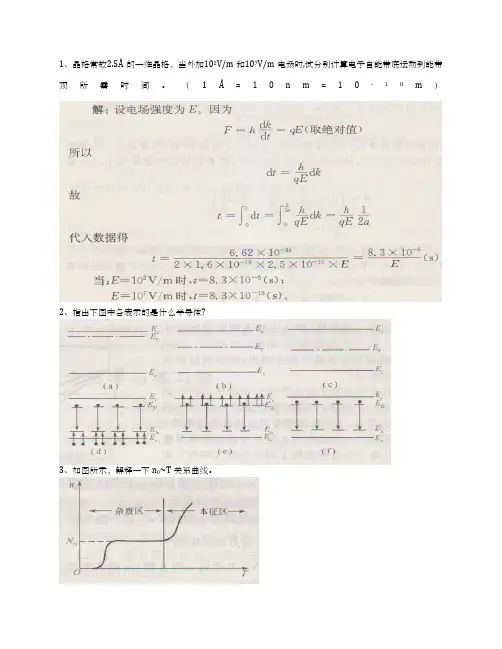 1、晶格常数2.5Å的一维晶格，当外加10²V/m和10⁷V/m电场时,试分别计算电子自能带底运动到能带
顶所需时间。(1Å=10nm=10⁻¹⁰m)
解：设电场强度为E，因为
F=h dk/dt=qE(取绝对值)
所以
dt=h/qE dk
故
t=∫₀ᵗdt=∫₀^(1/2a) h/qE dk=h/qE 1/2a
代入数据得
t=6.62×10⁻³⁴/2×1.6×10⁻¹⁹×2.5×10⁻¹⁰×E=8.3×10⁻⁶/E(s)
当：E=10²V/m时，t=8.3×10⁻⁸(s)；
E=10⁷V/m时，t=8.3×10⁻¹³(s)。
2、指出下图中各表示的是什么半导体？
(a)
(b)
(c)
(d)
(e)
(f)
3、如图所示，解释一下n₀~T关系曲线。
n₀
杂质区
本征区
O
T